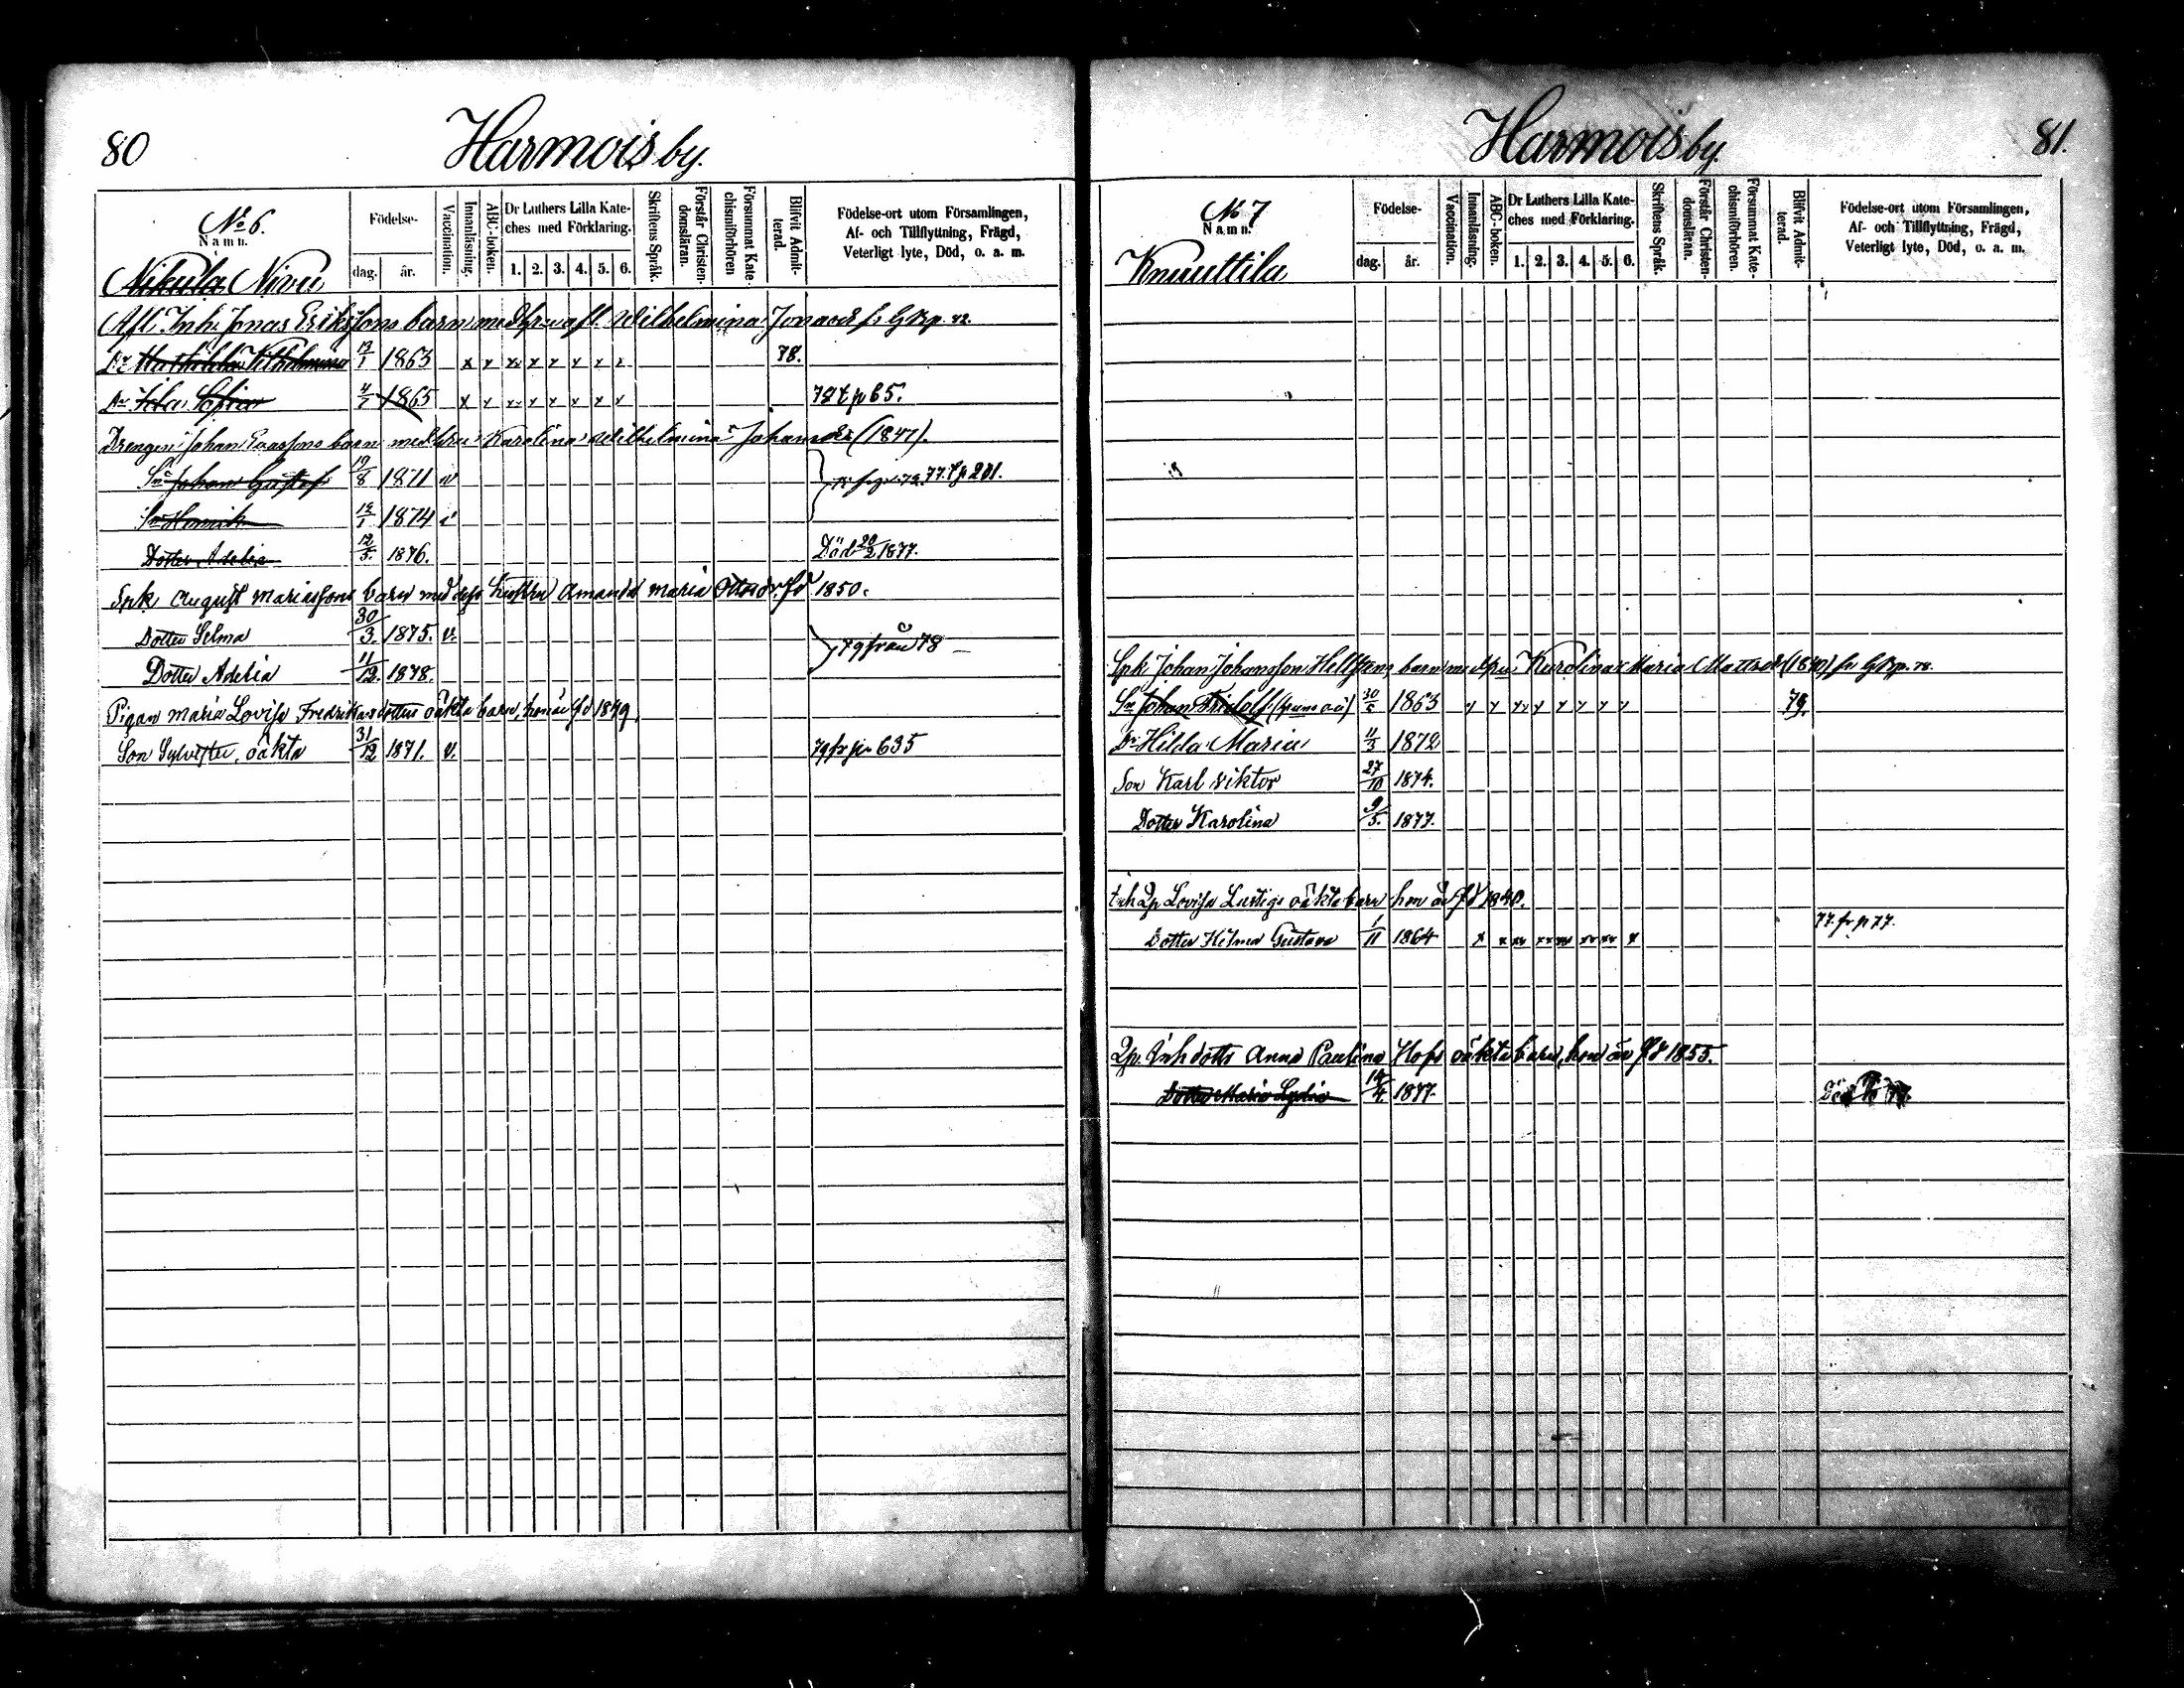 80
Harmois by.
No 6.
Namn.
Födelse-
dag. år.
Vaccination.
Innanläsning.
ABC-boken.
Dr Luthers Lilla Kate-
ches med Förklaring.
1. 2. 3. 4. 5. 6.
Skriftens Språk.
Förstår Christen-
domsläran.
Försummat Kate-
chismiförhören
Blifvit Admit-
terad.
Födelse-ort utom Församlingen,
Af- och Tillflyttning, Frägd,
Veterligt lyte, Död, o. a. m.
Nikula Nivu
Afl. Inh. Jonas Erikssons barn med hru afl. Wilhelmina Jonasdr fr. GBp. 82.
Dr Wilhelmina 13/1 1863 x x xx x x x x x 78.
Dr Ida Sofia 4/7 1865 x x xx x x x x x 78 t p 65.
Drengen Johan Enarssons barn med hru Karolina Wilhelmina Johansdr (1847).
Sn Johan Gustaf 19/8 1871 v 77. t p 201.
Sn Henrik 13/1 1874 v
Dotter Adelia 12/3. 1876. Död 20/2 1877.
Spk August Mariassons barn med dess hustru Amanda Maria Ottosdr. fd 1850.
Dotter Selma 30/3. 1875. v. 79 från 78
Dotter Adelia 11/12. 1878.
Pigan Maria Lovisa Fredriksdotters oäkta barn, hon är fd 1849.
Son Sylvester, oäkta 31/12 1871. v. 79 fr p. 635
81.
Harmois by.
No 7
Namn.
Födelse-
dag. år.
Vaccination.
Innanläsning.
ABC-boken.
Dr Luthers Lilla Kate-
ches med Förklaring.
1. 2. 3. 4. 5. 6.
Skriftens Språk.
Förstår Christen-
domsläran.
Försummat Kate-
chismiförhören.
Blifvit Admit-
terad.
Födelse-ort utom Församlingen,
Af- och Tillflyttning, Frägd,
Veterligt lyte, Död, o. a. m.
Knuuttila
Spk. Johan Johansson Hellstens barn med hru Karolina Maria Mattsdr (1840) fr GBp. 78.
Sn Johan Fridolf 1863 x x xx x x x x x 79.
Dr Hilda Maria 11/3 1872
Son Karl Viktor 27/10 1874.
Dotter Karolina 9/5. 1877.
Inh Qp Lovisa Lustigs oäkta barn hon är fd 1840.
Dotter Hilma Gustava 1/11 1864 x x xx xx xx xx xx x 77. fr p 77.
Qp. Inh dotts Anna Paulina Hofs oäkta barn, hon är fd 1855.
Dotter Maria Lydia 14/4. 1877. Död 77.